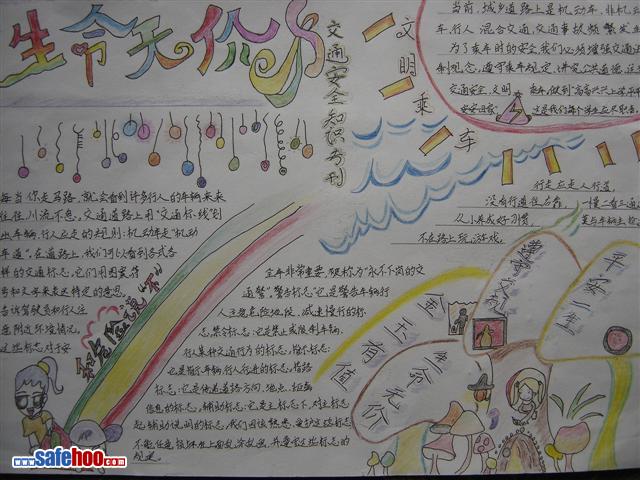 生命无价
交通安全知识专刊
文明乘车
当前,城乡道路上是机动车、非机
车、行人混合交通,交通事故频繁发
为了乘车时的安全,我们必须增强交通法
制观念,遵守乘车规定,讲究公共道德
交通安全,文明
每当你走马路,就会看到许多行人的车辆来来
往往,川流不息,交通道路上用"交通标线"划
出车辆、行人应走的规则:机动车走"机动
车道"。在道路上,我们可以看到各式各
样的交通标志,它们用图案符
号和文字来表达特定的意思,
告诉驾驶员和行人注
意附近环境情况。
这些标志对于安
和危险说"不"
全非常重要,被称为"永不下岗的交
通警"。警告标志:它是警告车辆行
人注意危险地段、减速慢行的标
志,禁令标志:它是禁止或限制车辆、
行人某种交通行为的标志,指示标志:
它是指示车辆、行人行进的标志,指路
标志:它是传递道路方向、地点、距离
信息的标志,辅助标志:它是主标志下,对主标志
起辅助说明的标志,我们应该熟悉、爱护这些标志
行走应走人行道,
没有行道往右靠,
从小养成好习惯,
不在路上玩游戏。
一慢二看三通
莫与车辆去抢
遵章交规
平安二生
金玉有值
生命无价
www.safehoo.com